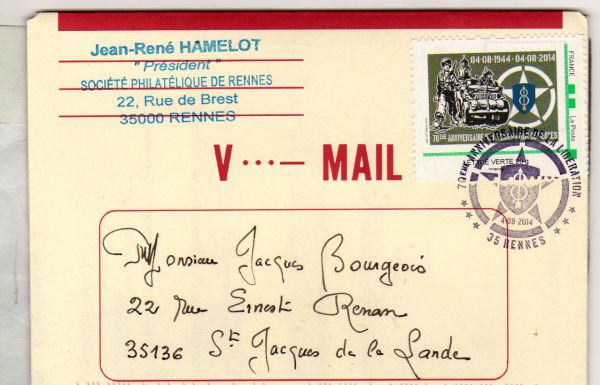 Jean-René HAMELOT
"Président"
SOCIÉTÉ PHILATÉLIQUE DE RENNES
22, Rue de Brest
35000 RENNES
04-08-1944 - 04-08-2014
FRANCE
La Poste
70ÈME ANNIVERSAIRE
LETTRE VERTE
V ···— MAIL
70ÈME ANNIVERSAIRE DE LA LIBÉRATION
4-08-2014
35 RENNES
Monsieur Jacques Bourgeois
22 rue Ernest Renan
35136 St Jacques de la Lande